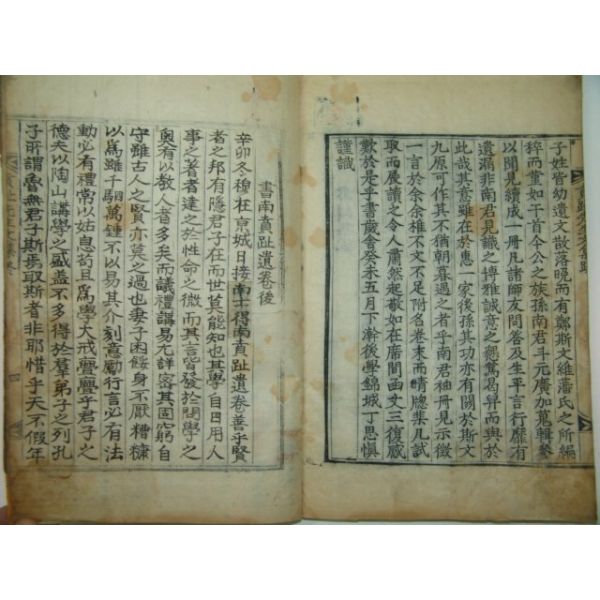 子姓皆幼遺文散落晚而有鄭斯文維藩氏之所編
稡而董如干首今公之族孫南君斗元廣加蒐輯參
以聞見續成一冊凡諸師友問答及生平言行靡有
遺漏非南君見識之博雅誠意之觀篤曷甹而與於
此哉其意雖在於惠一家後孫其功亦有關於斯文
九原可作其不猶朝暮遇之者乎南君袖冊見示徵
一言於余余椎不文不足附名卷末而晴牕棐几試
取而展讀之令人肅然起敬如在席間函丈三復感
歎於是乎書歲會癸未五月下澣後學錦城丁思愼
謹識
書南賁趾遺卷後
辛卯冬穆在京城日接南士得南賁趾遺卷善乎賢
者之邦有隱君子在而世莫能知也其學自日用人
事之著者達之於性命之微而其言皆發於問學之
奧有以教人者多矣而議禮講易尤詳密其固窮自
守雖古人之賢亦莫之過也妻子困餒身不厭糟糠
以爲雖千駟萬鍾不以易其介刻意勵行言必有法
動必有禮常以姑息苟且爲學大戒亹亹乎君子之
德夫以陶山講學之盛盖不多得於羣弟子之列孔
子所謂魯無君子斯焉取斯者非耶惜乎天不假年